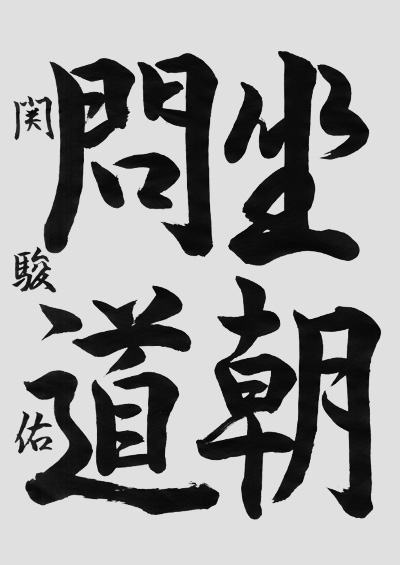 坐朝
問道
関駿佑